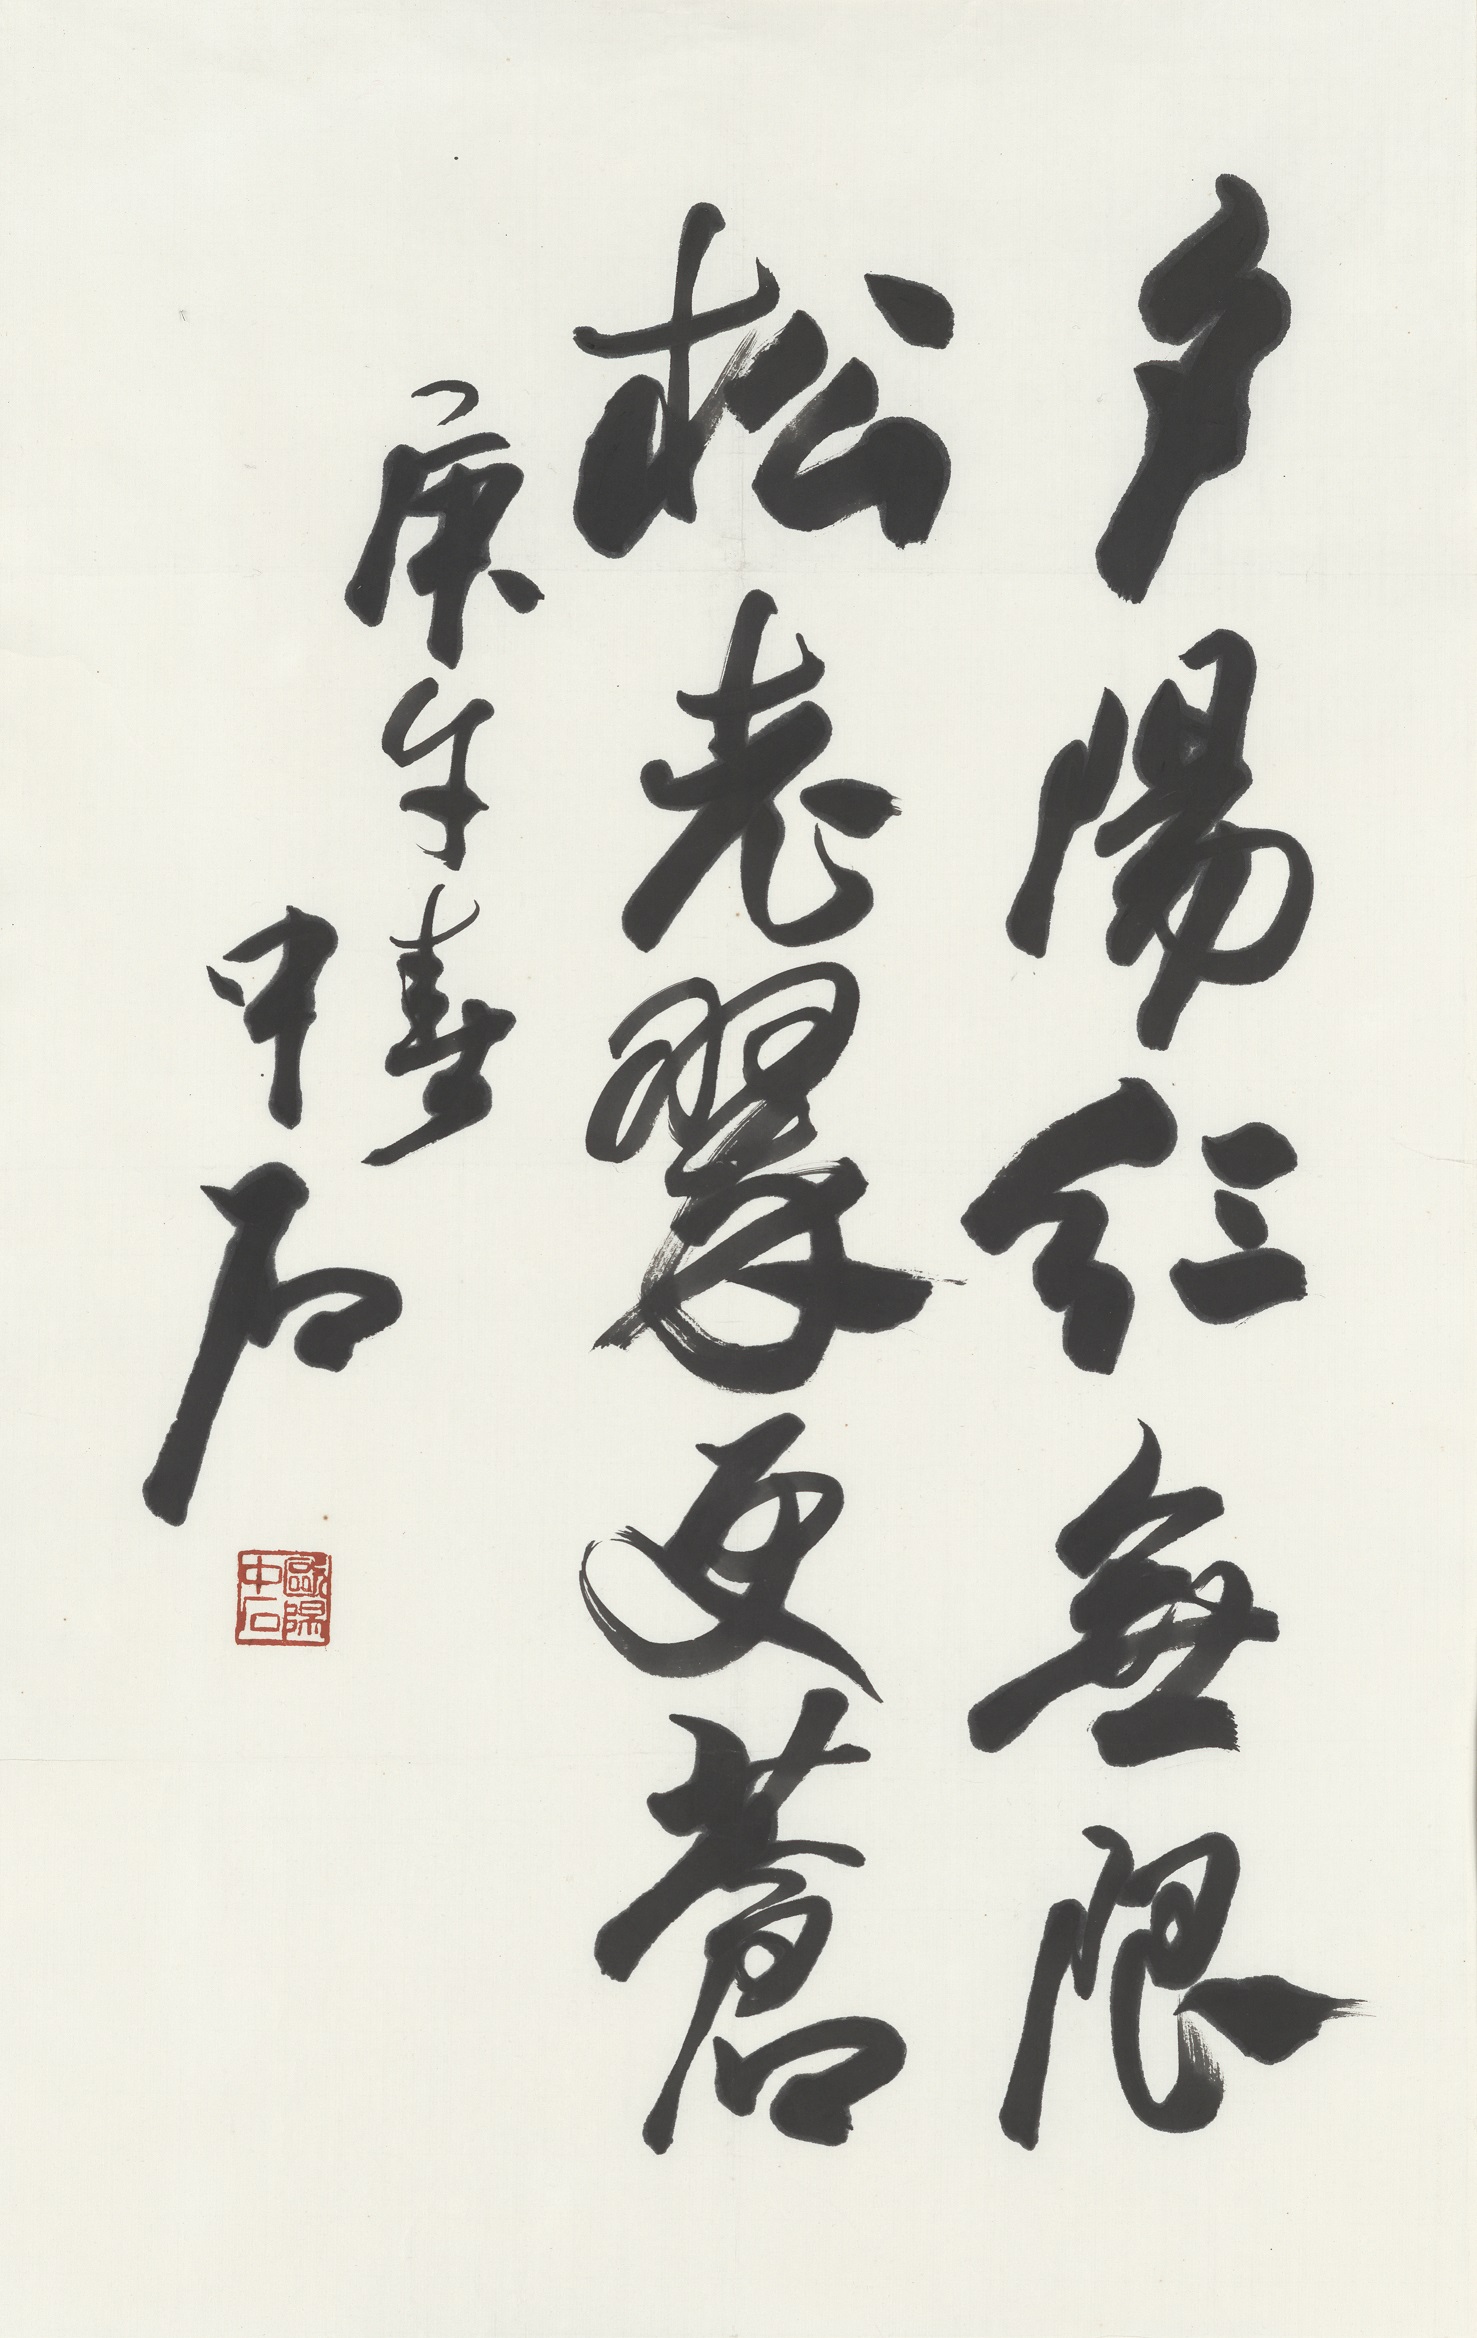 夕陽紅無限
松老翠更蒼
庚午春
中石
歐陽中石